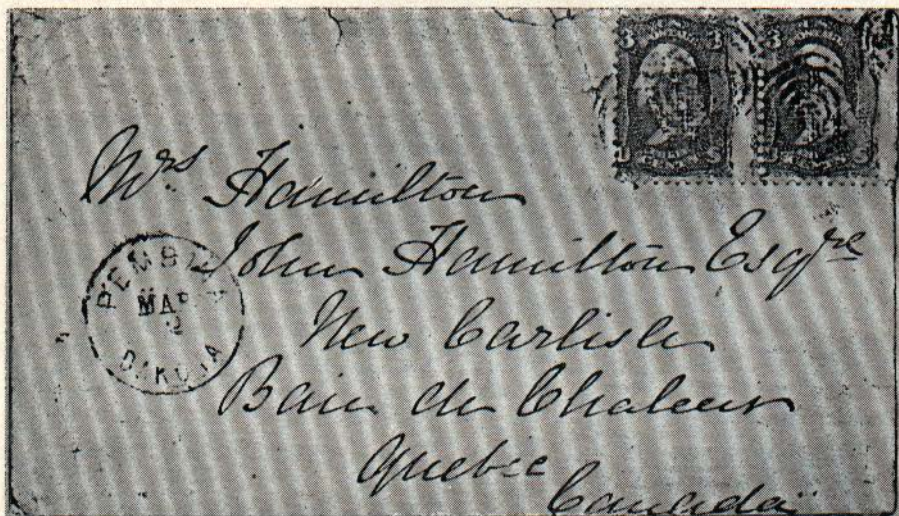 3 3 3
Mrs Hamilton
John Hamilton Esqre
New Carlisle
Baie de Chaleur
Quebec
Canada
PEMBINA
MAR
2
DAKOTA